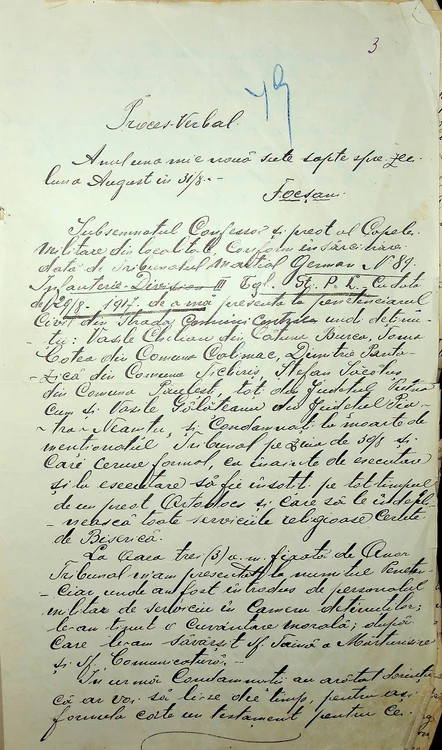 3
79
Proces-Verbal
Anul una mie nouă sute șapte spre zece
luna August in 31/8.-
Focșani
Subsemnatul Confesor și preot al Capelei
Militare din localitate Conform însărcinării
dată de Tribunalul Marțial German Nº 89.
Infanterie Division III Tgb. St. P. L. cu data
de 29/8-1917. de a mă presenta la penitenciarul
Civil din Strada unde detinu-
ții: Vasile Chilian din Cătuna Burca, Toma
Cotea din Comuna Colimac, Dumitru Panta-
zică din Comuna Nichiris, Ștefan Tacotus
din Comuna Păulești, tot din Județul Putna
cum și Vasile Gălățeanu din Județul Pia-
tra-Neamțu, și Condamnați la moarte de
mentionatul Tribunal pe ziua de 30/8 și
care ceruse formal, ca înainte de esecutare
și la esecutare să fie însoțiți pe tot timpul
de un preot Ortodocs și care să le îndepli-
nească toate serviciile religioase cerute
de Biserică.
La ora trei (3) a.m. fixată de Onor
Tribunal m'am presentat la numitul Peneten-
ciar unde am fost introdus de personalul
militar de serviciu in camera detinuților;
le-am ținut o cuvântare morală; după
care le-am săvârșit Sf. Taină a Mărturisirei
și Sf. Comunicătură.-
In urmă Condamnatii au arătat dorința
că ar voi să li-se dee timp, pentru a-și
formula câte un testament pentru cei